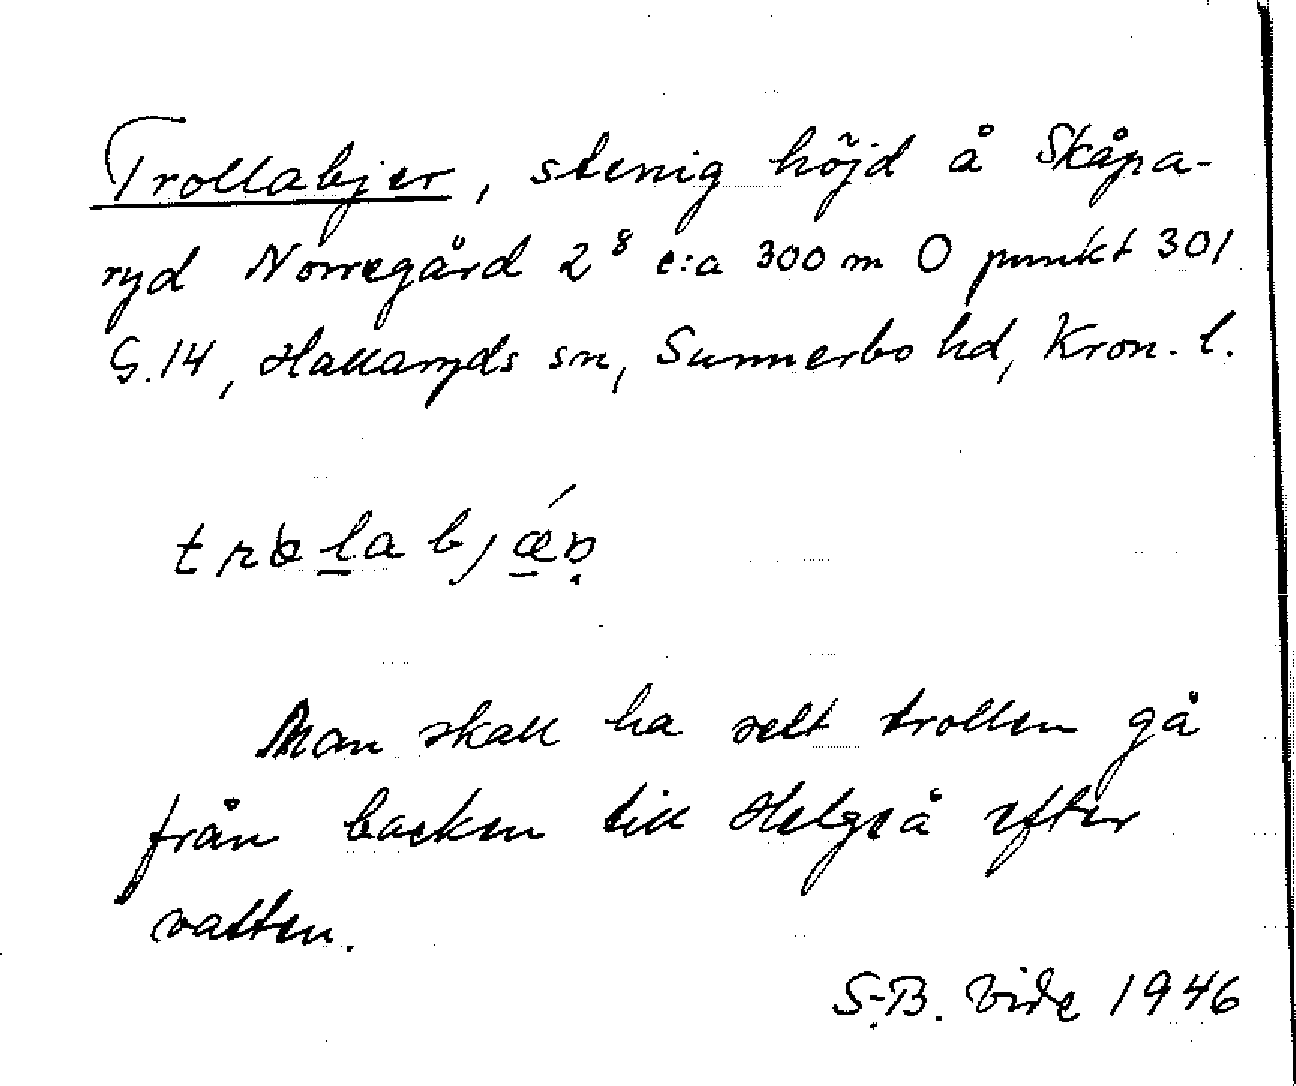 Trollabjer, stenig höjd å Skåpa-
ryd Norregård 2⁸ c:a 300 m O punkt 301
G.14, Hallaryds sn, Sunnerbo hd, Kron. l.
Man skall ha sett trollen gå
från backen till Helgeå efter
vatten.
S.-B. Vide 1946